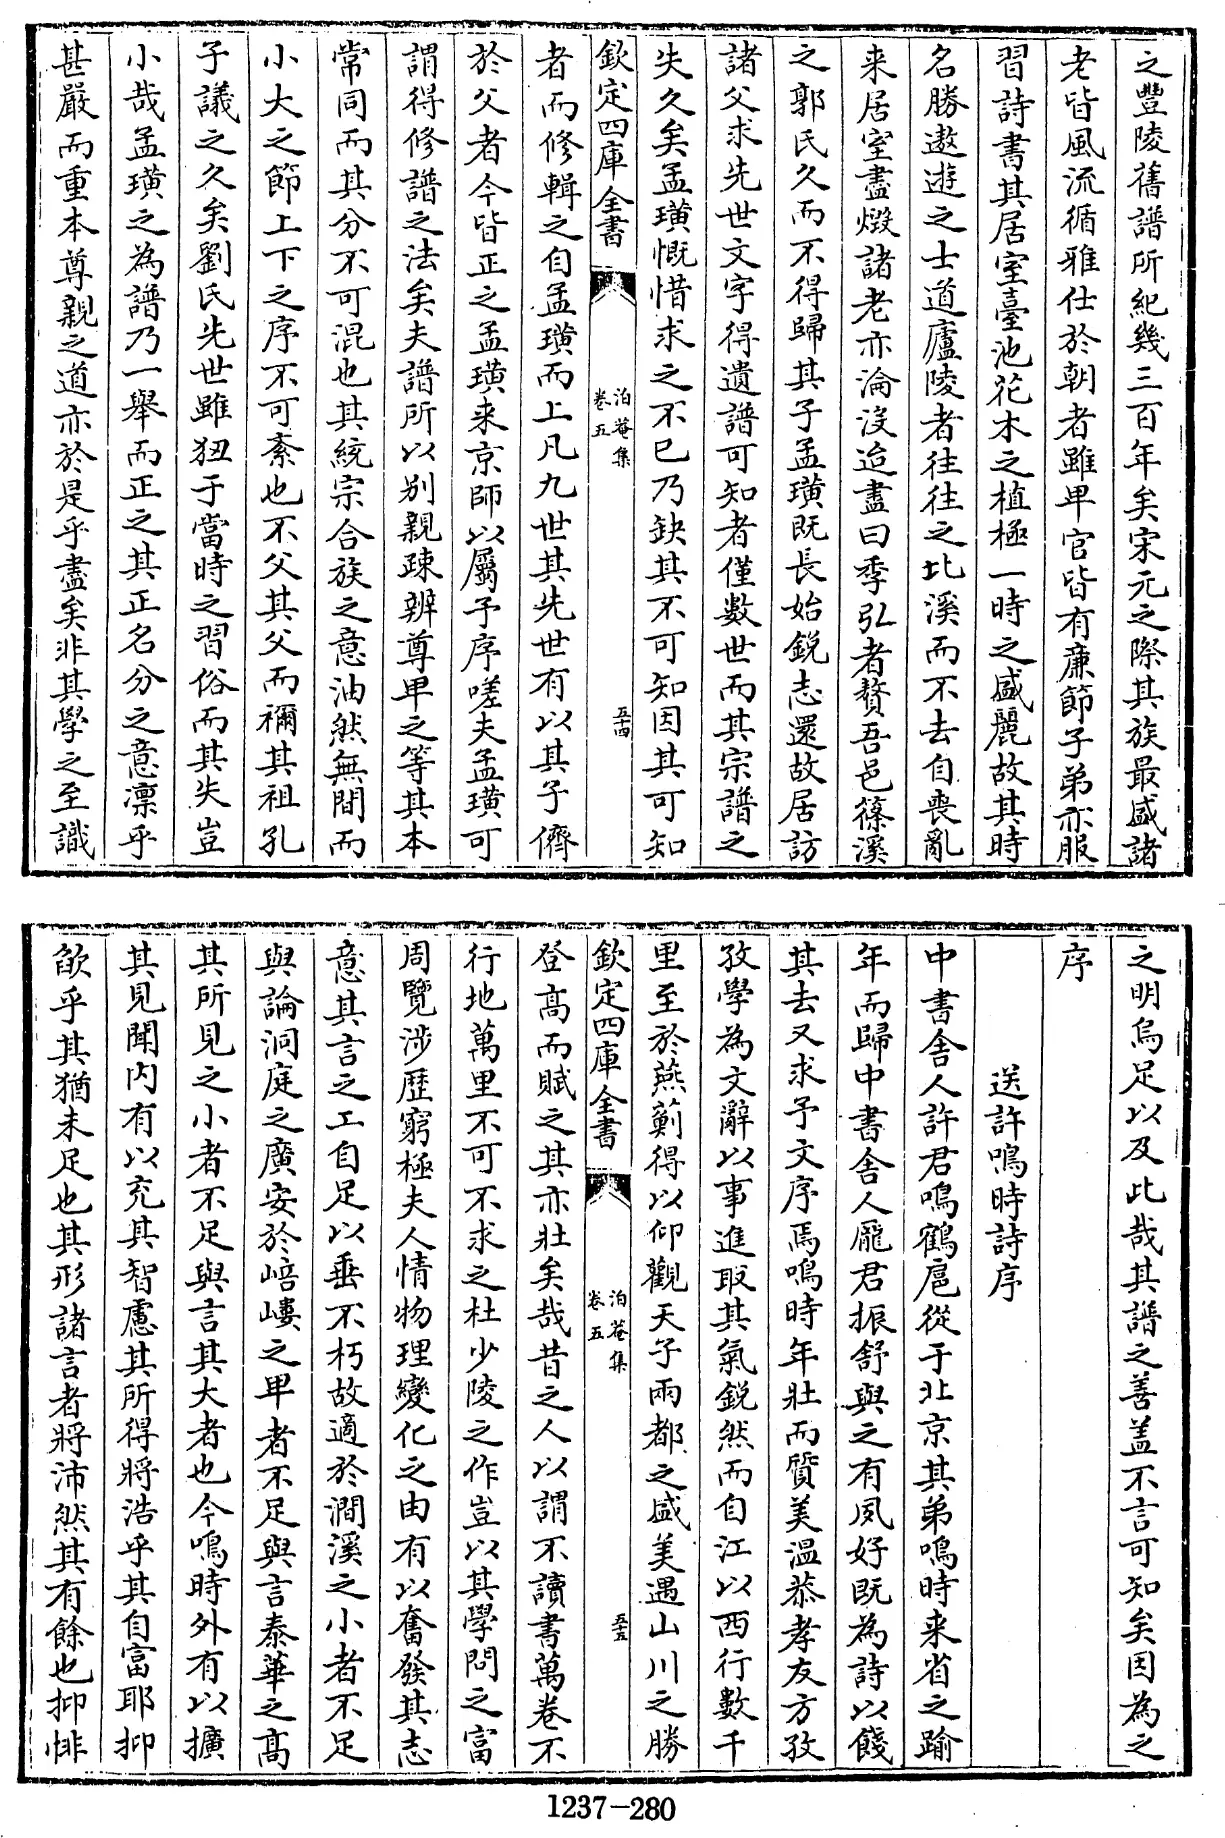 之豐陵舊譜所紀幾三百年矣宋元之際其族最盛諸
老皆風流循雅仕於朝者雖卑官皆有廉節子弟亦服
習詩書其居室臺池花木之植極一時之盛麗故其時
名勝遨遊之士道廬陵者往往之北溪而不去自喪亂
来居室盡燬諸老亦淪沒迨盡曰季弘者贅吾邑篠溪
之郭氏久而不得歸其子孟璜既長始銳志還故居訪
諸父求先世文字得遺譜可知者僅數世而其宗譜之
失久矣孟璜慨惜求之不已乃缺其不可知因其可知
欽定四庫全書
泊菴集
卷五
五十四
者而修輯之自孟璜而上凡九世其先世有以其子儕
於父者今皆正之孟璜来京師以屬予序嗟夫孟璜可
謂得修譜之法矣夫譜所以别親疎辨尊卑之等其本
常同而其分不可混也其統宗合族之意油然無間而
小大之節上下之序不可紊也不父其父而禰其祖孔
子議之久矣劉氏先世雖狃于當時之習俗而其失豈
小哉孟璜之為譜乃一舉而正之其正名分之意凛乎
甚嚴而重本尊親之道亦於是乎盡矣非其學之至識
之明烏足以及此哉其譜之善盖不言可知矣因為之
序
送許鳴時詩序
中書舍人許君鳴鶴扈從于北京其弟鳴時来省之踰
年而歸中書舍人龎君振舒與之有夙好既為詩以餞
其去又求予文序焉鳴時年壯而質美温恭孝友方孜
孜學為文辭以事進取其氣鋭然而自江以西行數千
里至於燕薊得以仰觀天子兩都之盛美遇山川之勝
欽定四庫全書
泊菴集
卷五
五十五
登高而賦之其亦壯矣哉昔之人以謂不讀書萬卷不
行地萬里不可不求之杜少陵之作豈以其學問之富
周覽涉歷窮極夫人情物理變化之由有以奮發其志
意其言之工自足以垂不朽故適於澗溪之小者不足
與論洞庭之廣安於㟝嶁之卑者不足與言泰華之高
其所見之小者不足與言其大者也今鳴時外有以擴
其見聞内有以充其智慮其所得將浩乎其自富耶抑
飲乎其猶未足也其形諸言者將沛然其有餘也抑悱